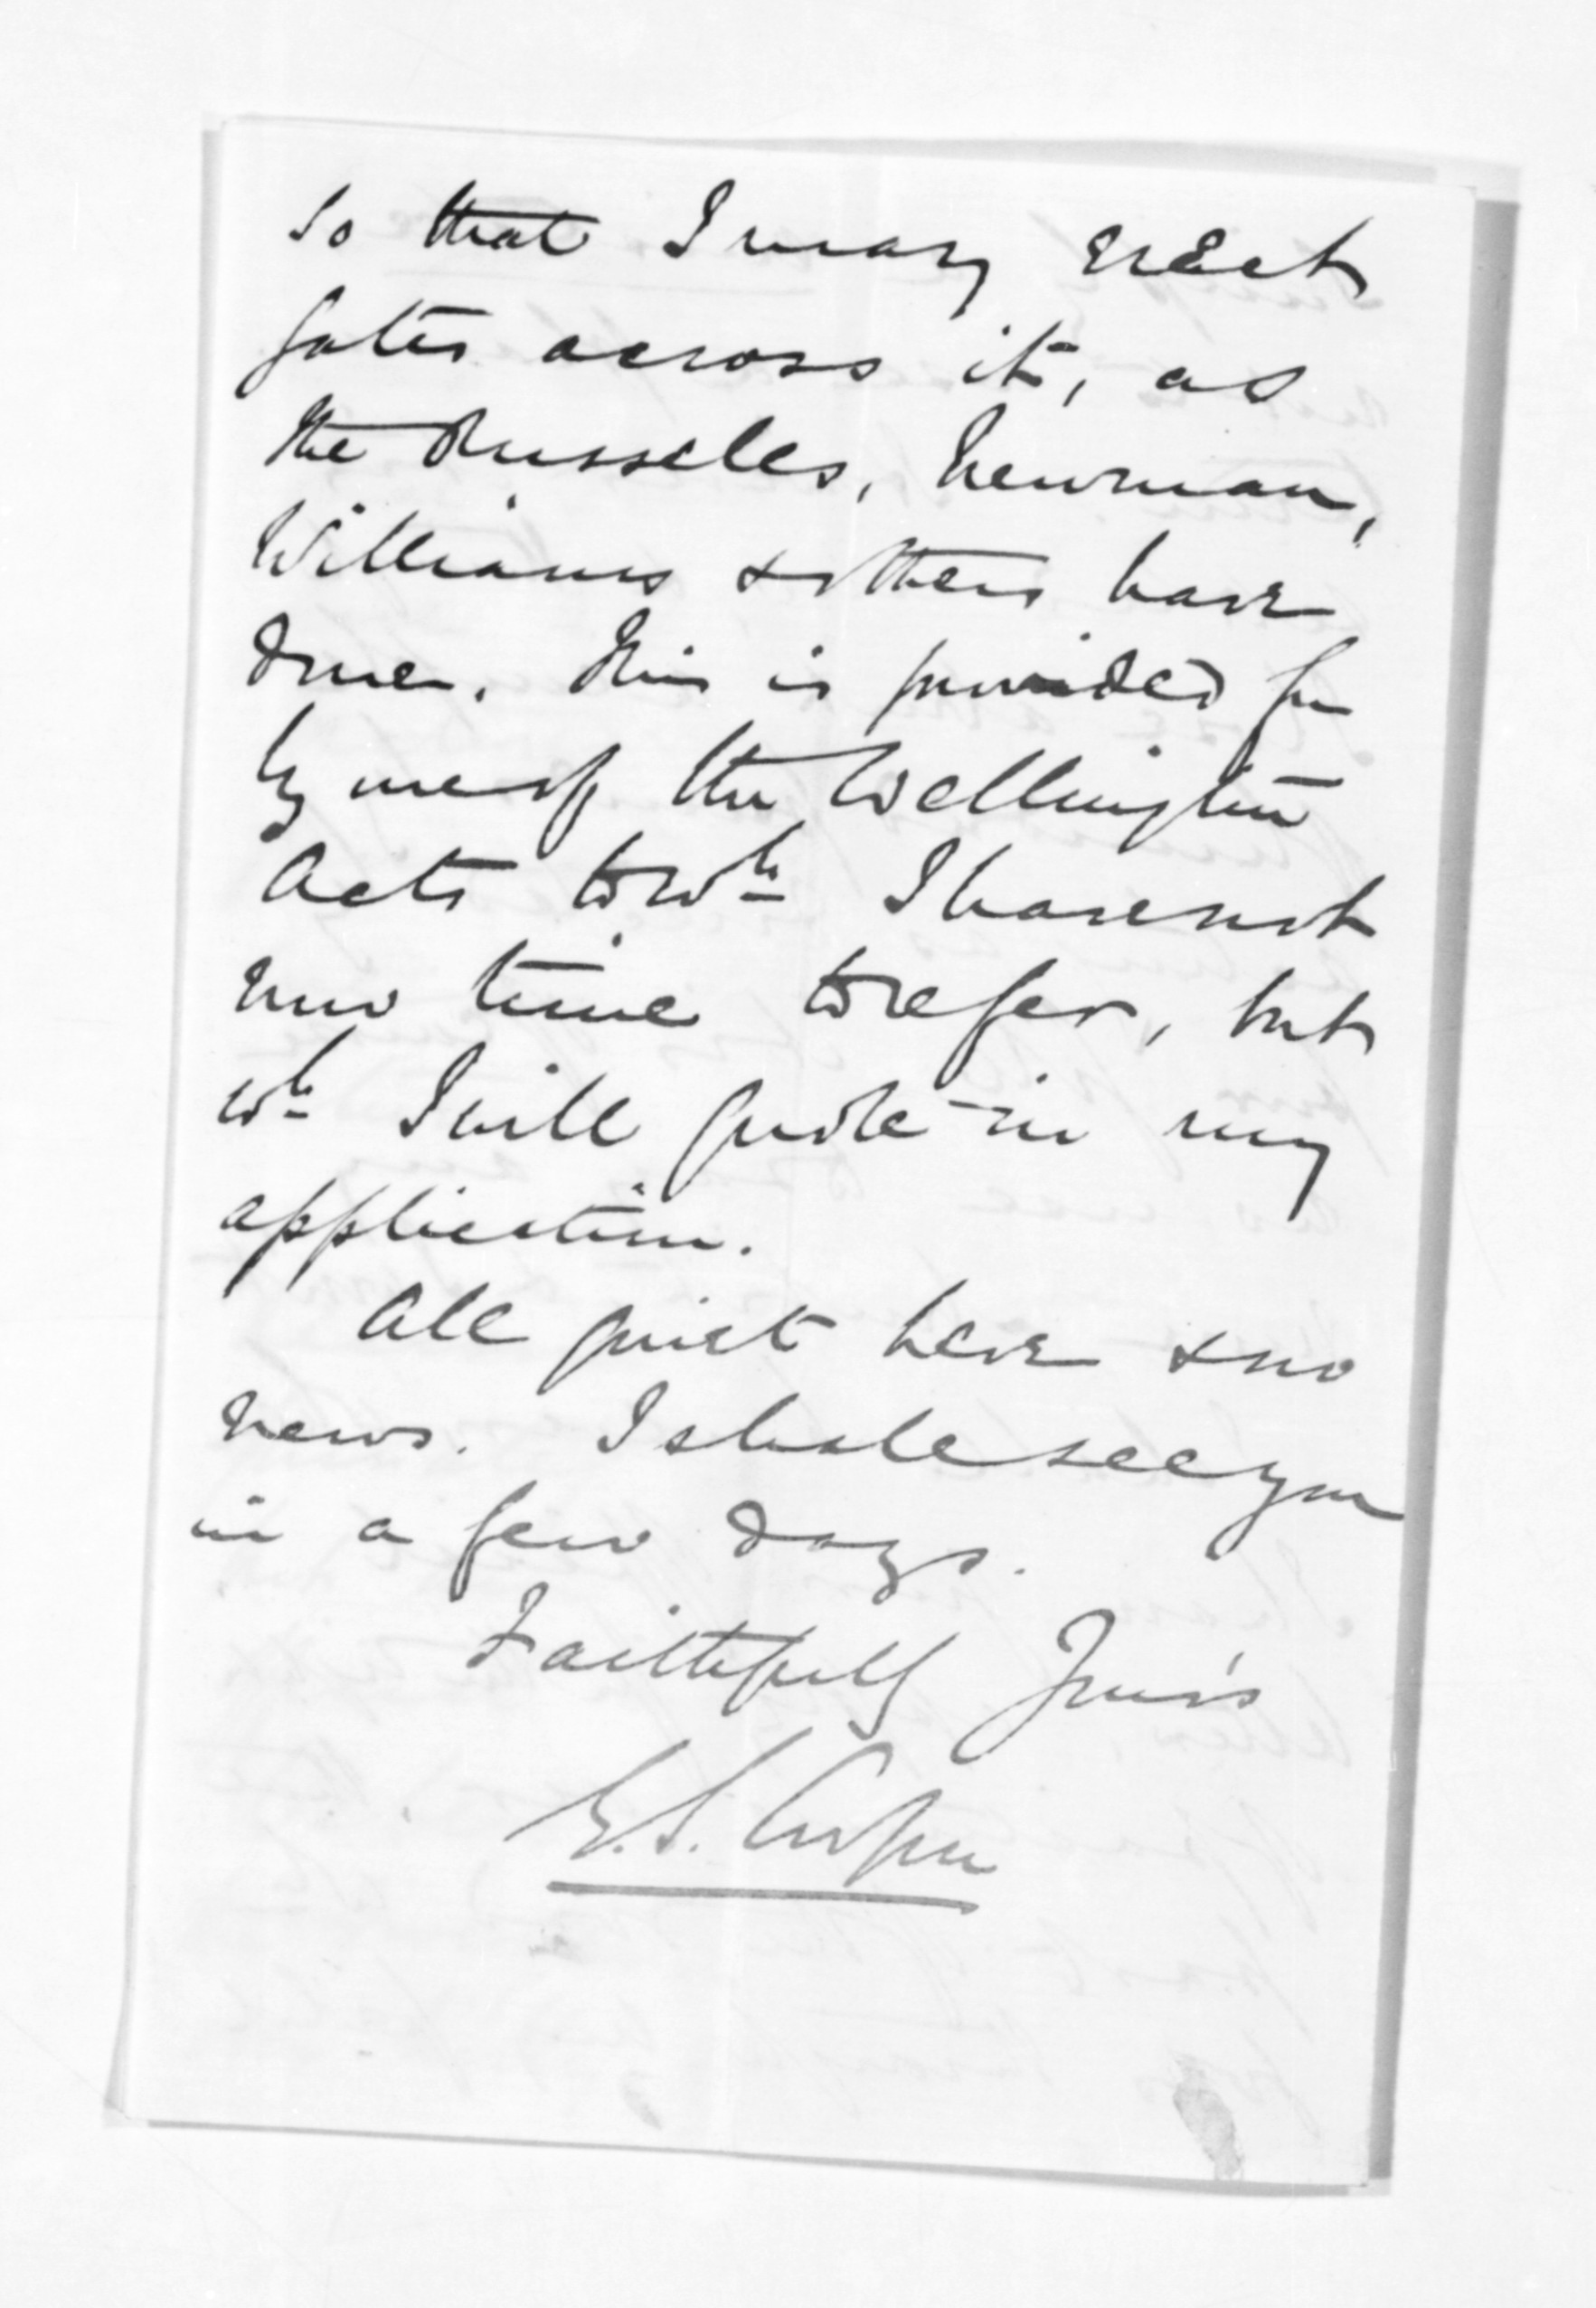 so that I may erect
gates across it, as
the Russells, Newman,
Williams & others have
done. This is provided for
by one of the Wellington
Acts to wh. I have not
now time to refer, but
wh. I will quote in my
application.
All quiet here & no
news. I shall see you
in a few days.
Faithfully Yours
G.S. Cooper